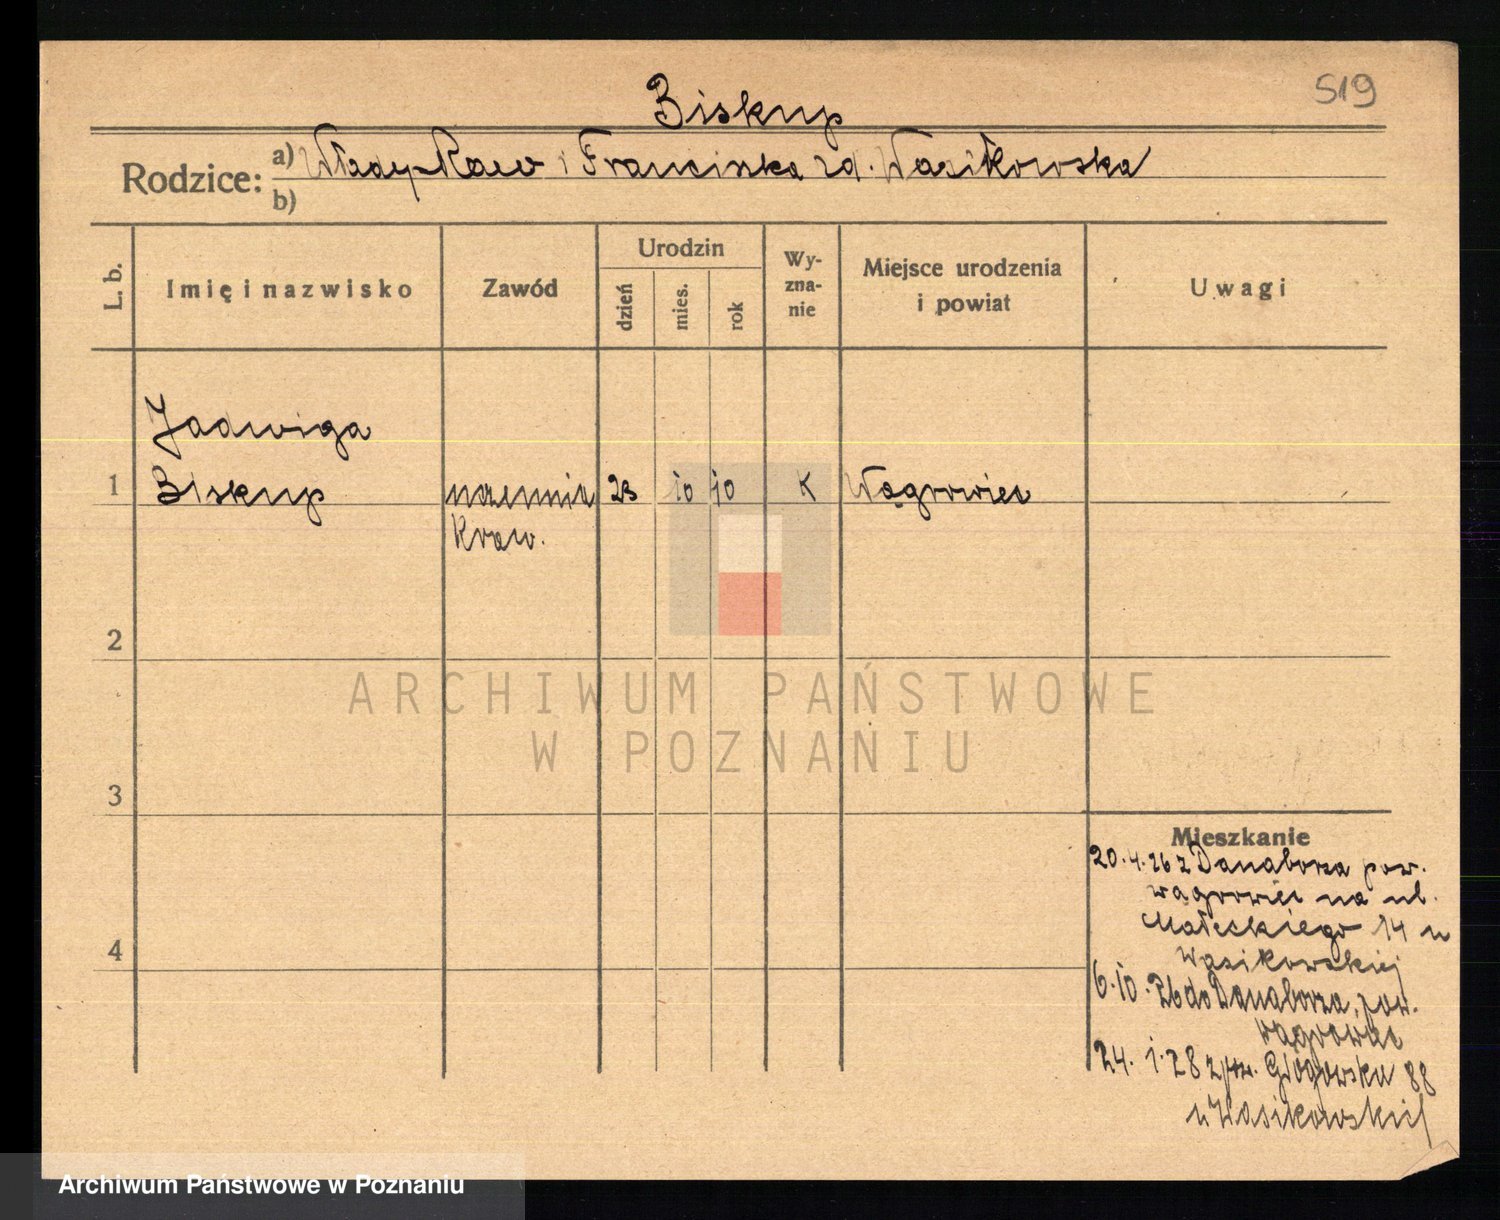 519
Biskup
Rodzice: a) Władysław i Franciszka zd. Wasikowska
b)
L. b.
Imię i nazwisko
Zawód
Urodzin
dzień
mies.
rok
Wy-
zna-
nie
Miejsce urodzenia
i powiat
Uwagi
Jadwiga
1 Biskup uczennica 23 10 10 K Wągrowiec
Kraw.
2
ARCHIWUM PAŃSTWOWE
W POZNANIU
3
Mieszkanie
20.4.26 z Danaborza pow.
wągrowiec na ul.
Małeckiego 14 u
Wasikowskiej
4
6.10.26 do Danaborza, pow.
wągrowiec
24. 1.28 Głogowska 88
u Wasikowskiej
Archiwum Państwowe w Poznaniu